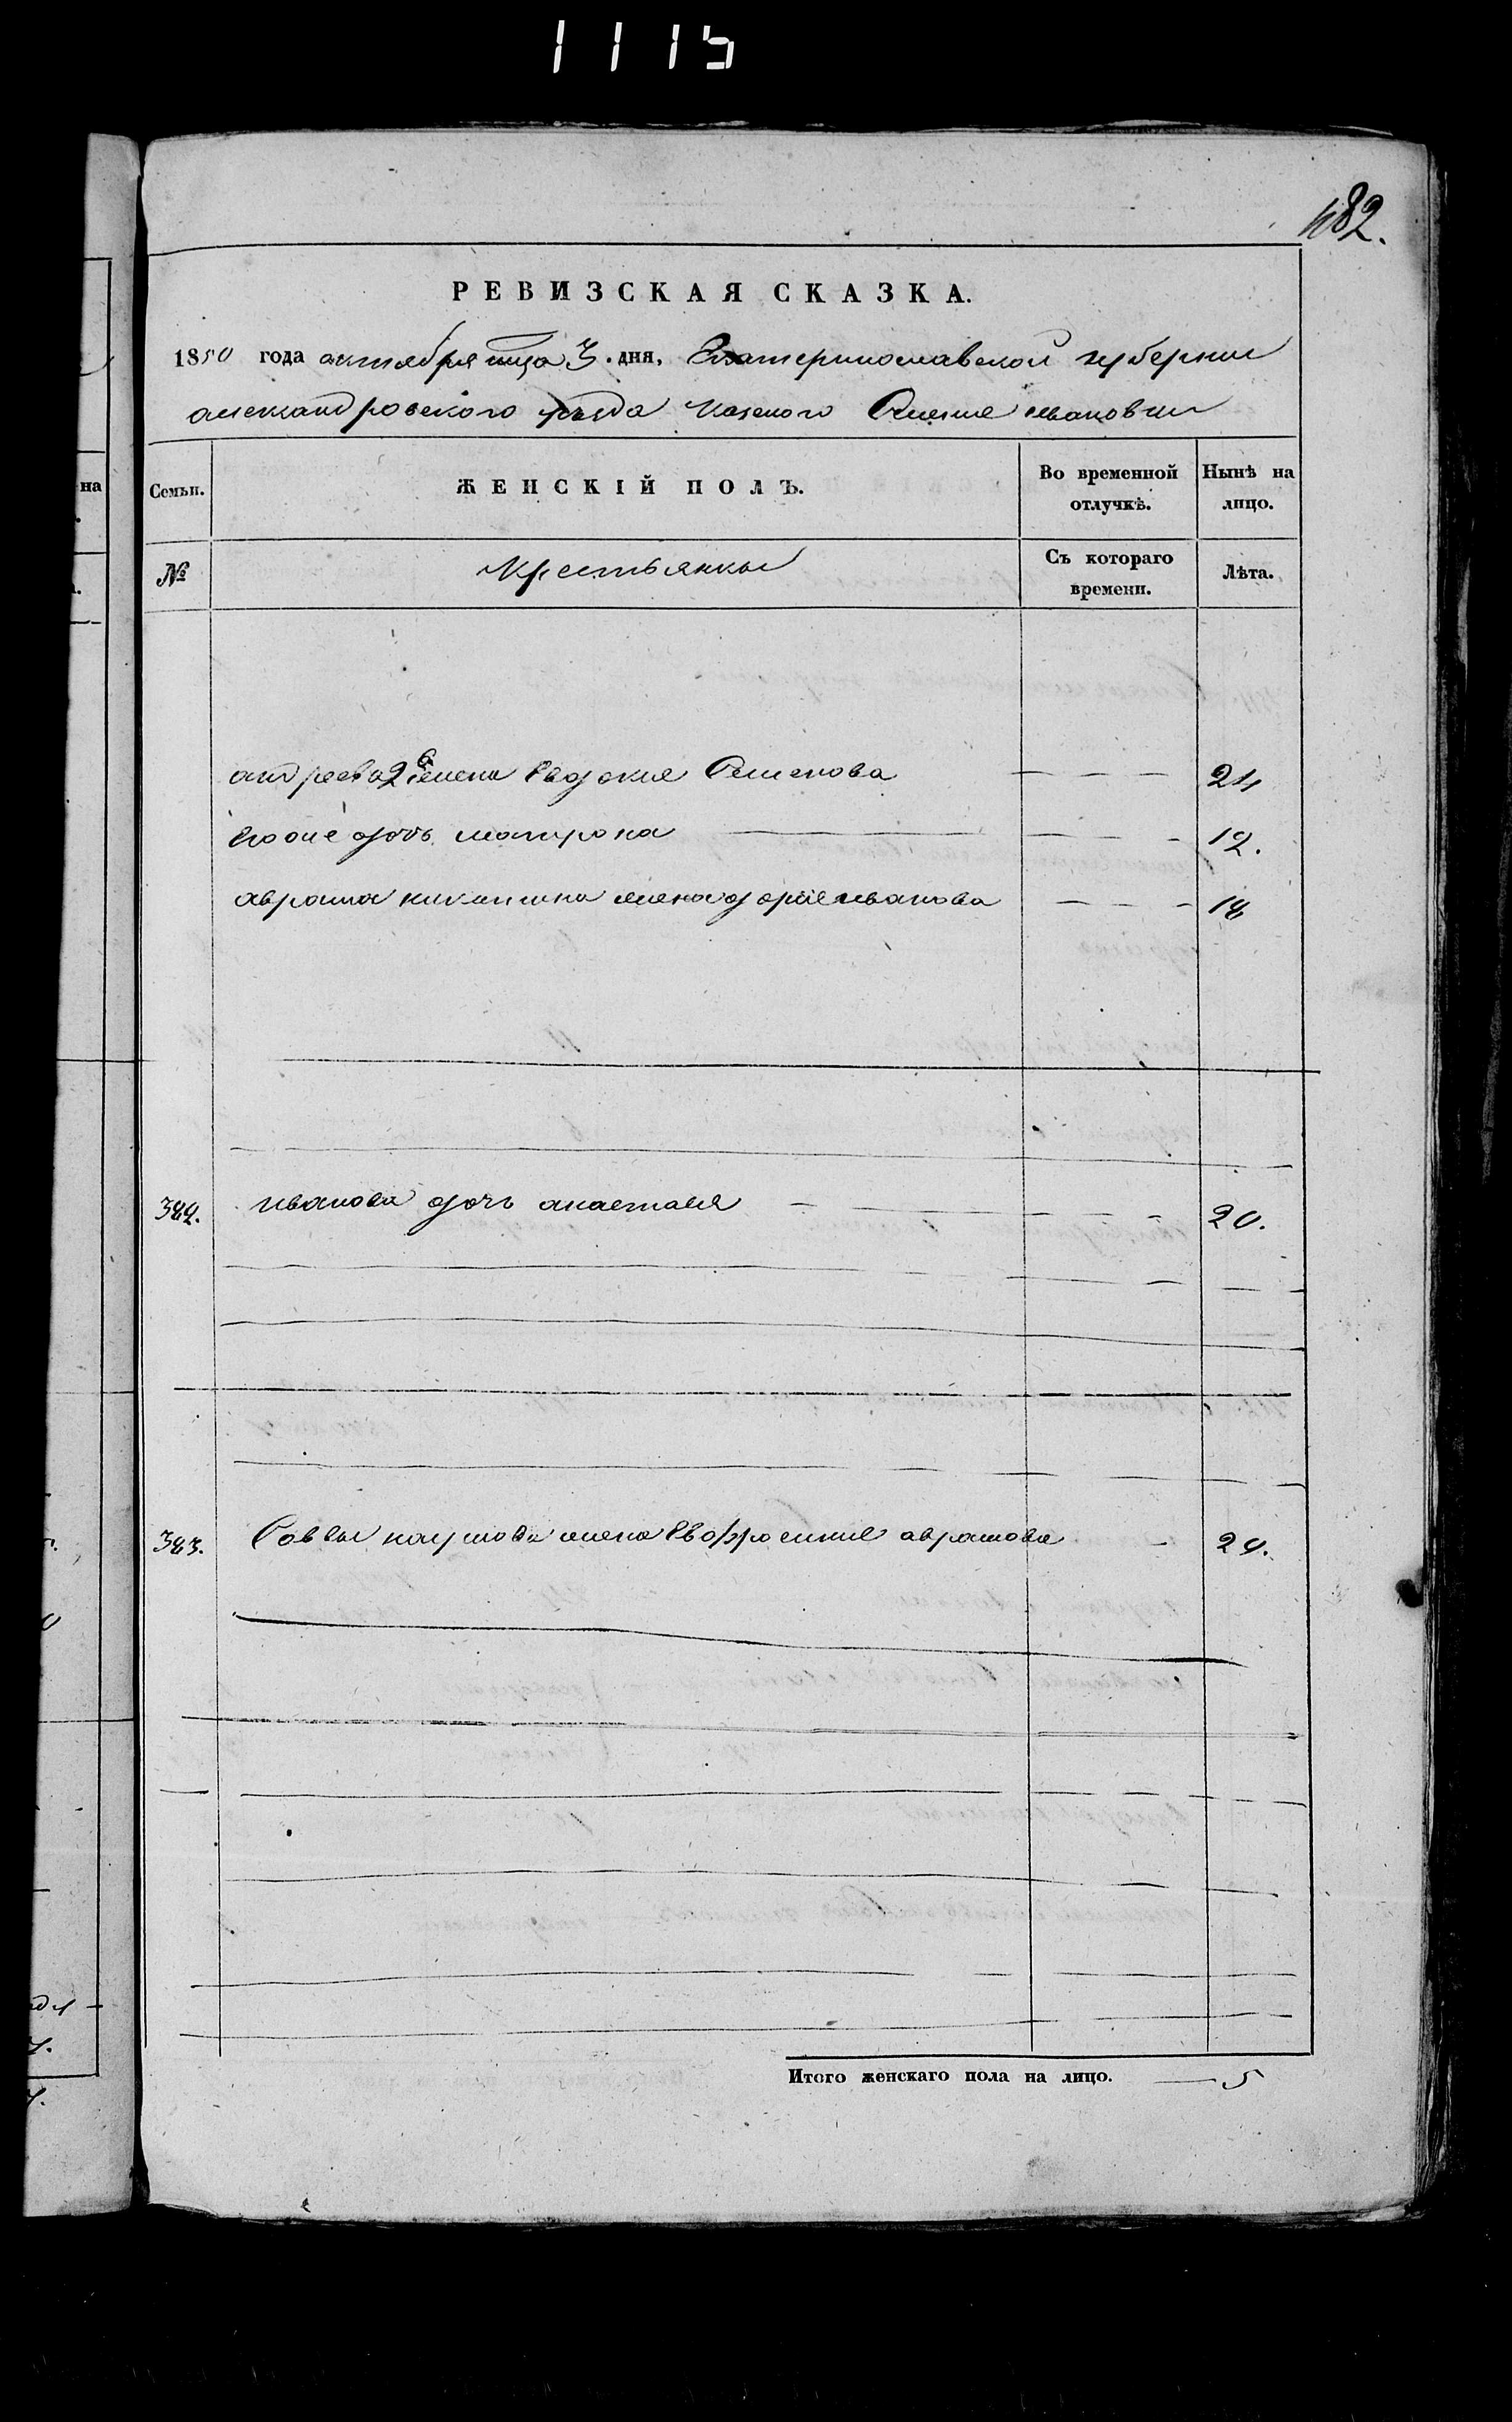 1115
482.
РЕВИЗСКАЯ СКАЗКА.
1850 года октября мца 3. дня, Екатеринославской губернии
александровского уезда казеного Селения ивановки
Семьи.
ЖЕНСКІЙ ПОЛЪ.
Во временной отлучкѣ.
Нынѣ на лицо.
№
Крестьянки
Съ котораго времени.
Лѣта.
андреева 2 жена Евдокия Семенова — — — 24
Его дочь матрона — — — 12.
аврама никитина жена дария иванова — — — 18
382. иванова дочь анастасия — — — 20.
383. Саввы наумова жена Евфросиния аврамова — 20.
Итого женскаго пола на лицо. — 5
на